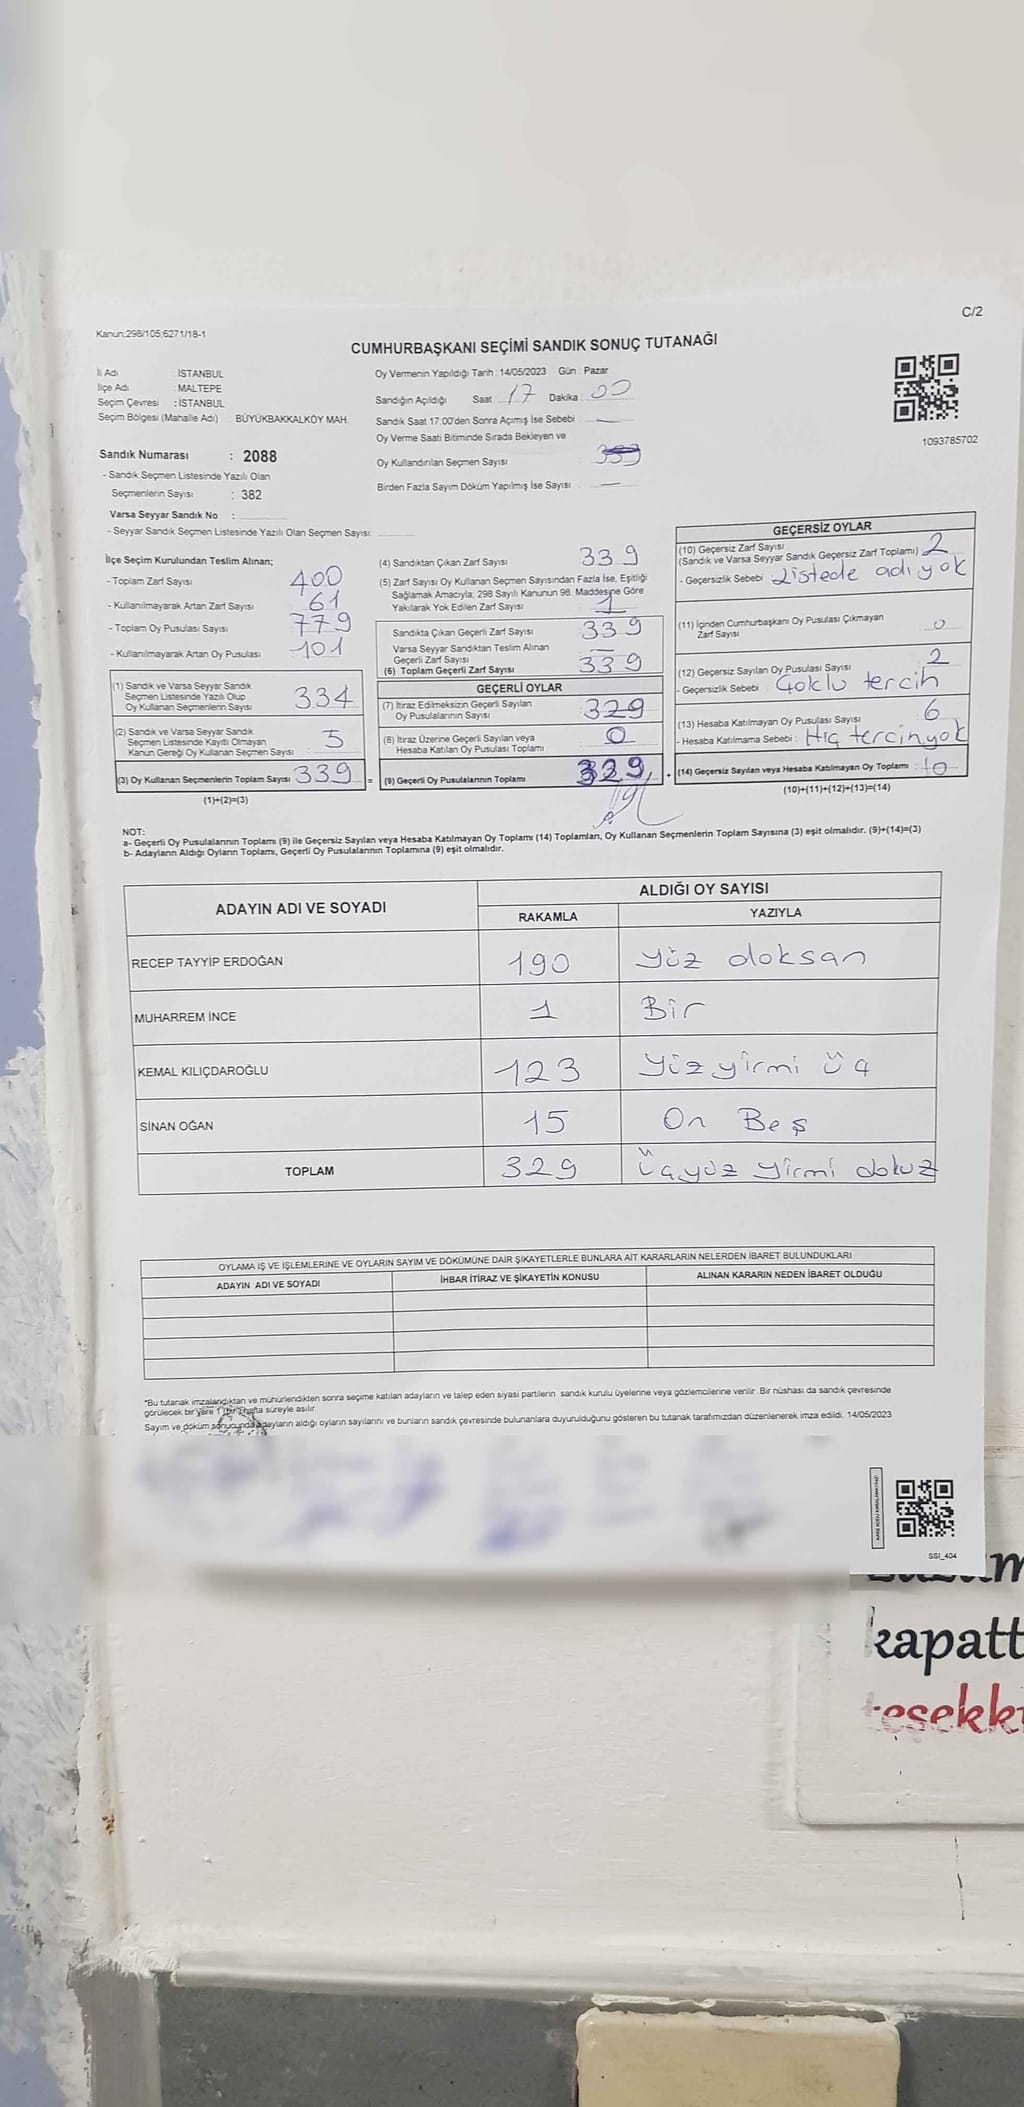 C/2
Kanun:298/105;6271/18-1
CUMHURBAŞKANI SEÇİMİ SANDIK SONUÇ TUTANAĞI
İl Adı : İSTANBUL
İlçe Adı : MALTEPE
Seçim Çevresi : İSTANBUL
Seçim Bölgesi (Mahalle Adı) : BÜYÜKBAKKALKÖY MAH.
Sandık Numarası : 2088
- Sandık Seçmen Listesinde Yazılı Olan
Seçmenlerin Sayısı : 382
Varsa Seyyar Sandık No :
- Seyyar Sandık Seçmen Listesinde Yazılı Olan Seçmen Sayısı:
Oy Vermenin Yapıldığı Tarih : 14/05/2023 Gün : Pazar
Sandığın Açıldığı Saat : 17 Dakika : 00
Sandık Saat 17:00'den Sonra Açımış İse Sebebi : —
Oy Verme Saati Bitiminde Sırada Bekleyen ve
Oy Kullandırılan Seçmen Sayısı :
Birden Fazla Sayım Döküm Yapılmış İse Sayısı : —
1093785702
İlçe Seçim Kurulundan Teslim Alınan;
- Toplam Zarf Sayısı 400
- Kullanılmayarak Artan Zarf Sayısı 61
- Toplam Oy Pusulası Sayısı 779
- Kullanılmayarak Artan Oy Pusulası 101
(1) Sandık ve Varsa Seyyar Sandık
Seçmen Listesinde Yazılı Olup
Oy Kullanan Seçmenlerin Sayısı 334
(2) Sandık ve Varsa Seyyar Sandık
Seçmen Listesinde Kayıtlı Olmayan
Kanun Gereği Oy Kullanan Seçmen Sayısı 5
(3) Oy Kullanan Seçmenlerin Toplam Sayısı 339 =
(1)+(2)=(3)
(4) Sandıktan Çıkan Zarf Sayısı 339
(5) Zarf Sayısı Oy Kullanan Seçmen Sayısından Fazla İse, Eşitliği
Sağlamak Amacıyla; 298 Sayılı Kanunun 98. Maddesine Göre
Yakılarak Yok Edilen Zarf Sayısı 1
Sandıkta Çıkan Geçerli Zarf Sayısı 339
Varsa Seyyar Sandıktan Teslim Alınan
Geçerli Zarf Sayısı —
(6) Toplam Geçerli Zarf Sayısı 339
GEÇERLİ OYLAR
(7) İtiraz Edilmeksizin Geçerli Sayılan
Oy Pusulalarının Sayısı 329
(8) İtiraz Üzerine Geçerli Sayılan veya
Hesaba Katılan Oy Pusulası Toplamı 0
(9) Geçerli Oy Pusulalarının Toplamı 329 +
GEÇERSİZ OYLAR
(10) Geçersiz Zarf Sayısı
(Sandık ve Varsa Seyyar Sandık Geçersiz Zarf Toplamı) 2
- Geçersizlik Sebebi : Listede adı yok
(11) İçinden Cumhurbaşkanı Oy Pusulası Çıkmayan
Zarf Sayısı 0
(12) Geçersiz Sayılan Oy Pusulası Sayısı 2
- Geçersizlik Sebebi : Çoklu tercih
(13) Hesaba Katılmayan Oy Pusulası Sayısı 6
- Hesaba Katılmama Sebebi : Hiç tercih yok
(14) Geçersiz Sayılan veya Hesaba Katılmayan Oy Toplamı : 10
(10)+(11)+(12)+(13)=(14)
NOT:
a- Geçerli Oy Pusulalarının Toplamı (9) ile Geçersiz Sayılan veya Hesaba Katılmayan Oy Toplamı (14) Toplamları, Oy Kullanan Seçmenlerin Toplam Sayısına (3) eşit olmalıdır. (9)+(14)=(3)
b- Adayların Aldığı Oyların Toplamı, Geçerli Oy Pusulalarının Toplamına (9) eşit olmalıdır.
ADAYIN ADI VE SOYADI ALDIĞI OY SAYISI
RAKAMLA YAZIYLA
RECEP TAYYİP ERDOĞAN 190 Yüz doksan
MUHARREM İNCE 1 Bir
KEMAL KILIÇDAROĞLU 123 Yüz yirmi üç
SİNAN OĞAN 15 On Beş
TOPLAM 329 Üçyüz yirmi dokuz
OYLAMA İŞ VE İŞLEMLERİNE VE OYLARIN SAYIM VE DÖKÜMÜNE DAİR ŞİKAYETLERLE BUNLARA AİT KARARLARIN NELERDEN İBARET BULUNDUKLARI
ADAYIN ADI VE SOYADI İHBAR İTİRAZ VE ŞİKAYETİN KONUSU ALINAN KARARIN NEDEN İBARET OLDUĞU
*Bu tutanak imzalandıktan ve mühürlendikten sonra seçime katılan adayların ve talep eden siyasi partilerin sandık kurulu üyelerine veya gözlemcilerine verilir. Bir nüshası da sandık çevresinde
görülecek bir yere 1 hafta süreyle asılır.
Sayım ve döküm sonucunda adayların aldığı oyların sayılarını ve bunların sandık çevresinde bulunanlara duyurulduğunu gösteren bu tutanak tarafımızdan düzenlenerek imza edildi. 14/05/2023
SSI_404
kapatt
teşekki